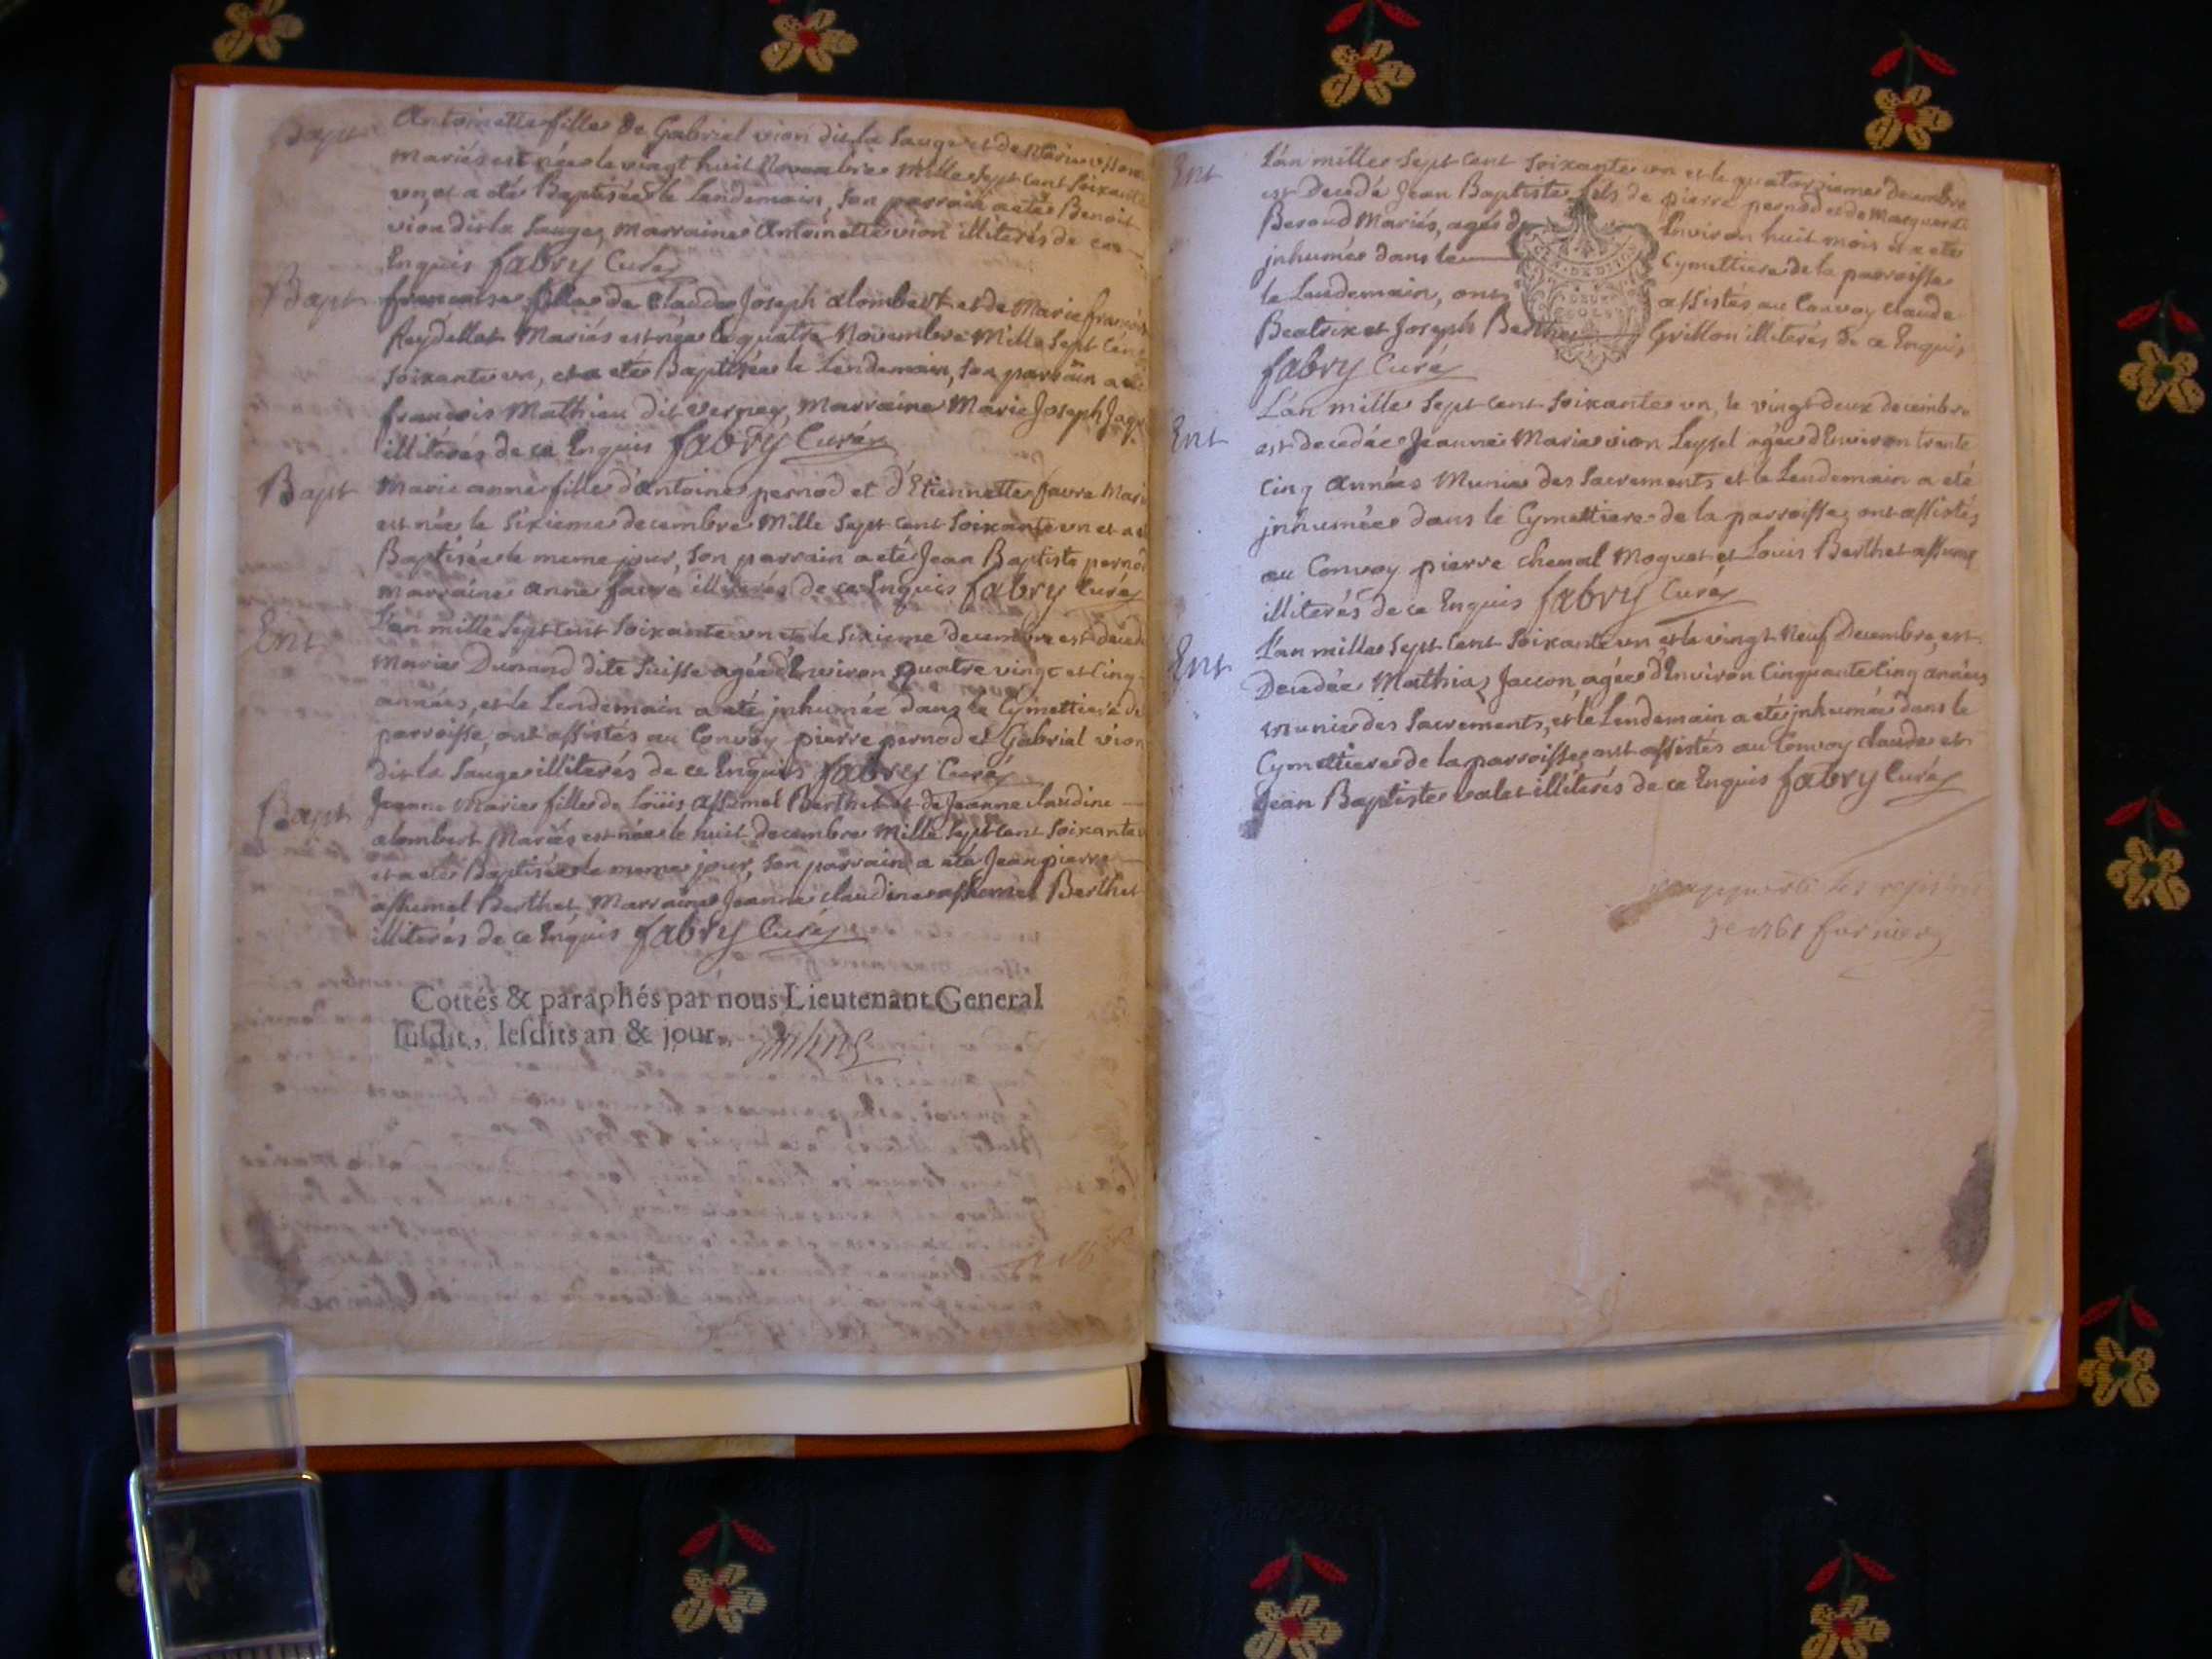 Bapt
Antoinette fille de Gabriel vion dit la Sauge et de Marie
Mariés est née le vingt huit Novembre Mille Sept Cent Soixante
un, et a été Baptisée le Lendemain, Son parrain a eté Benoit
vion dit la Sauge, Marraine Antoinette vion illiterés de ce
Enquis fabry Curé
Bapt
francoise fille de Claude Joseph alombert et de Marie francoise
Reydellet Mariés est née le quatre Novembre Mille Sept Cent
Soixante un, et a eté Baptisée le Lendemain, Son parrain a eté
francois Mathieu dit Verney, Marraine Marie Joseph
illiterés de ce Enquis fabry Curé
Bapt
Marie anne fille d'antoine pernod et d'Etiennette favre Mariés
est née le Sixieme decembre Mille Sept Cent Soixante un et a eté
Baptisée le meme jour, Son parrain a eté Jean Baptiste pernod
marraine anne favre illiterés de ce Enquis fabry Curé
Ent
L'an mille Sept Cent Soixante un et le Sixieme decembre est decedé
Marie Dunand dite Suisse agée d'Environ quatre vingt et Cinq
années, et le Lendemain a eté jnhumée dans le Cymettiere de
parroisse, ont assistés au Convoy pierre pernod et Gabriel vion
dit la Sauge illiterés de ce Enquis fabry Curé
Bapt
Jeanne Marie fille de Loüis assumel Berthet et de Jeanne Claudine
alombert Mariés est née le huit decembre Mille Sept Cent Soixante
et a eté Baptisée le meme jour, Son parrain a eté Jean pierre
assumel Berthet, Marraine Jeanne Claudine assumel Berthet
illiterés de ce Enquis fabry Curé
Cottés & paraphés par nous Lieutenant General
susdit, lesdits an & jour.
Ent
L'an mille Sept Cent Soixante un et le quatorzieme decembre
est Decedé Jean Baptiste fils de pierre pernod et de Marguerite
Beroud Mariés, agés d'Environ huit mois et a eté
jnhumé dans le Cymettiere de la parroisse
le Lendemain, ont assistés au Convoy Claude
Beatrix et Joseph Berthet Grillon illiterés de ce Enquis
fabry Curé
Ent
L'an mille Sept Cent Soixante un, le vingt deux decembre
est decedée Jeanne Marie vion Loysel agée d'Environ trente
Cinq Années Munie des Sacrements et le Lendemain a eté
jnhumée dans le Cymettiere de la parroisse, ont assistés
au Convoy pierre chenal Moquet et Louis Berthet assumel
illiterés de ce Enquis fabry Curé
Ent
L'an mille Sept Cent Soixante un, et le vingt Neuf Decembre, est
Decedée Mathia Jaccon, agée d'Environ Cinquante Cinq années
munie des Sacrements, et le Lendemain a eté jnhumée dans le
Cymettiere de la parroisse, ont assistés au Convoy Claude et
Jean Baptiste valet illiterés de ce Enquis fabry Curé
apporté les registres
de 1761 furnier